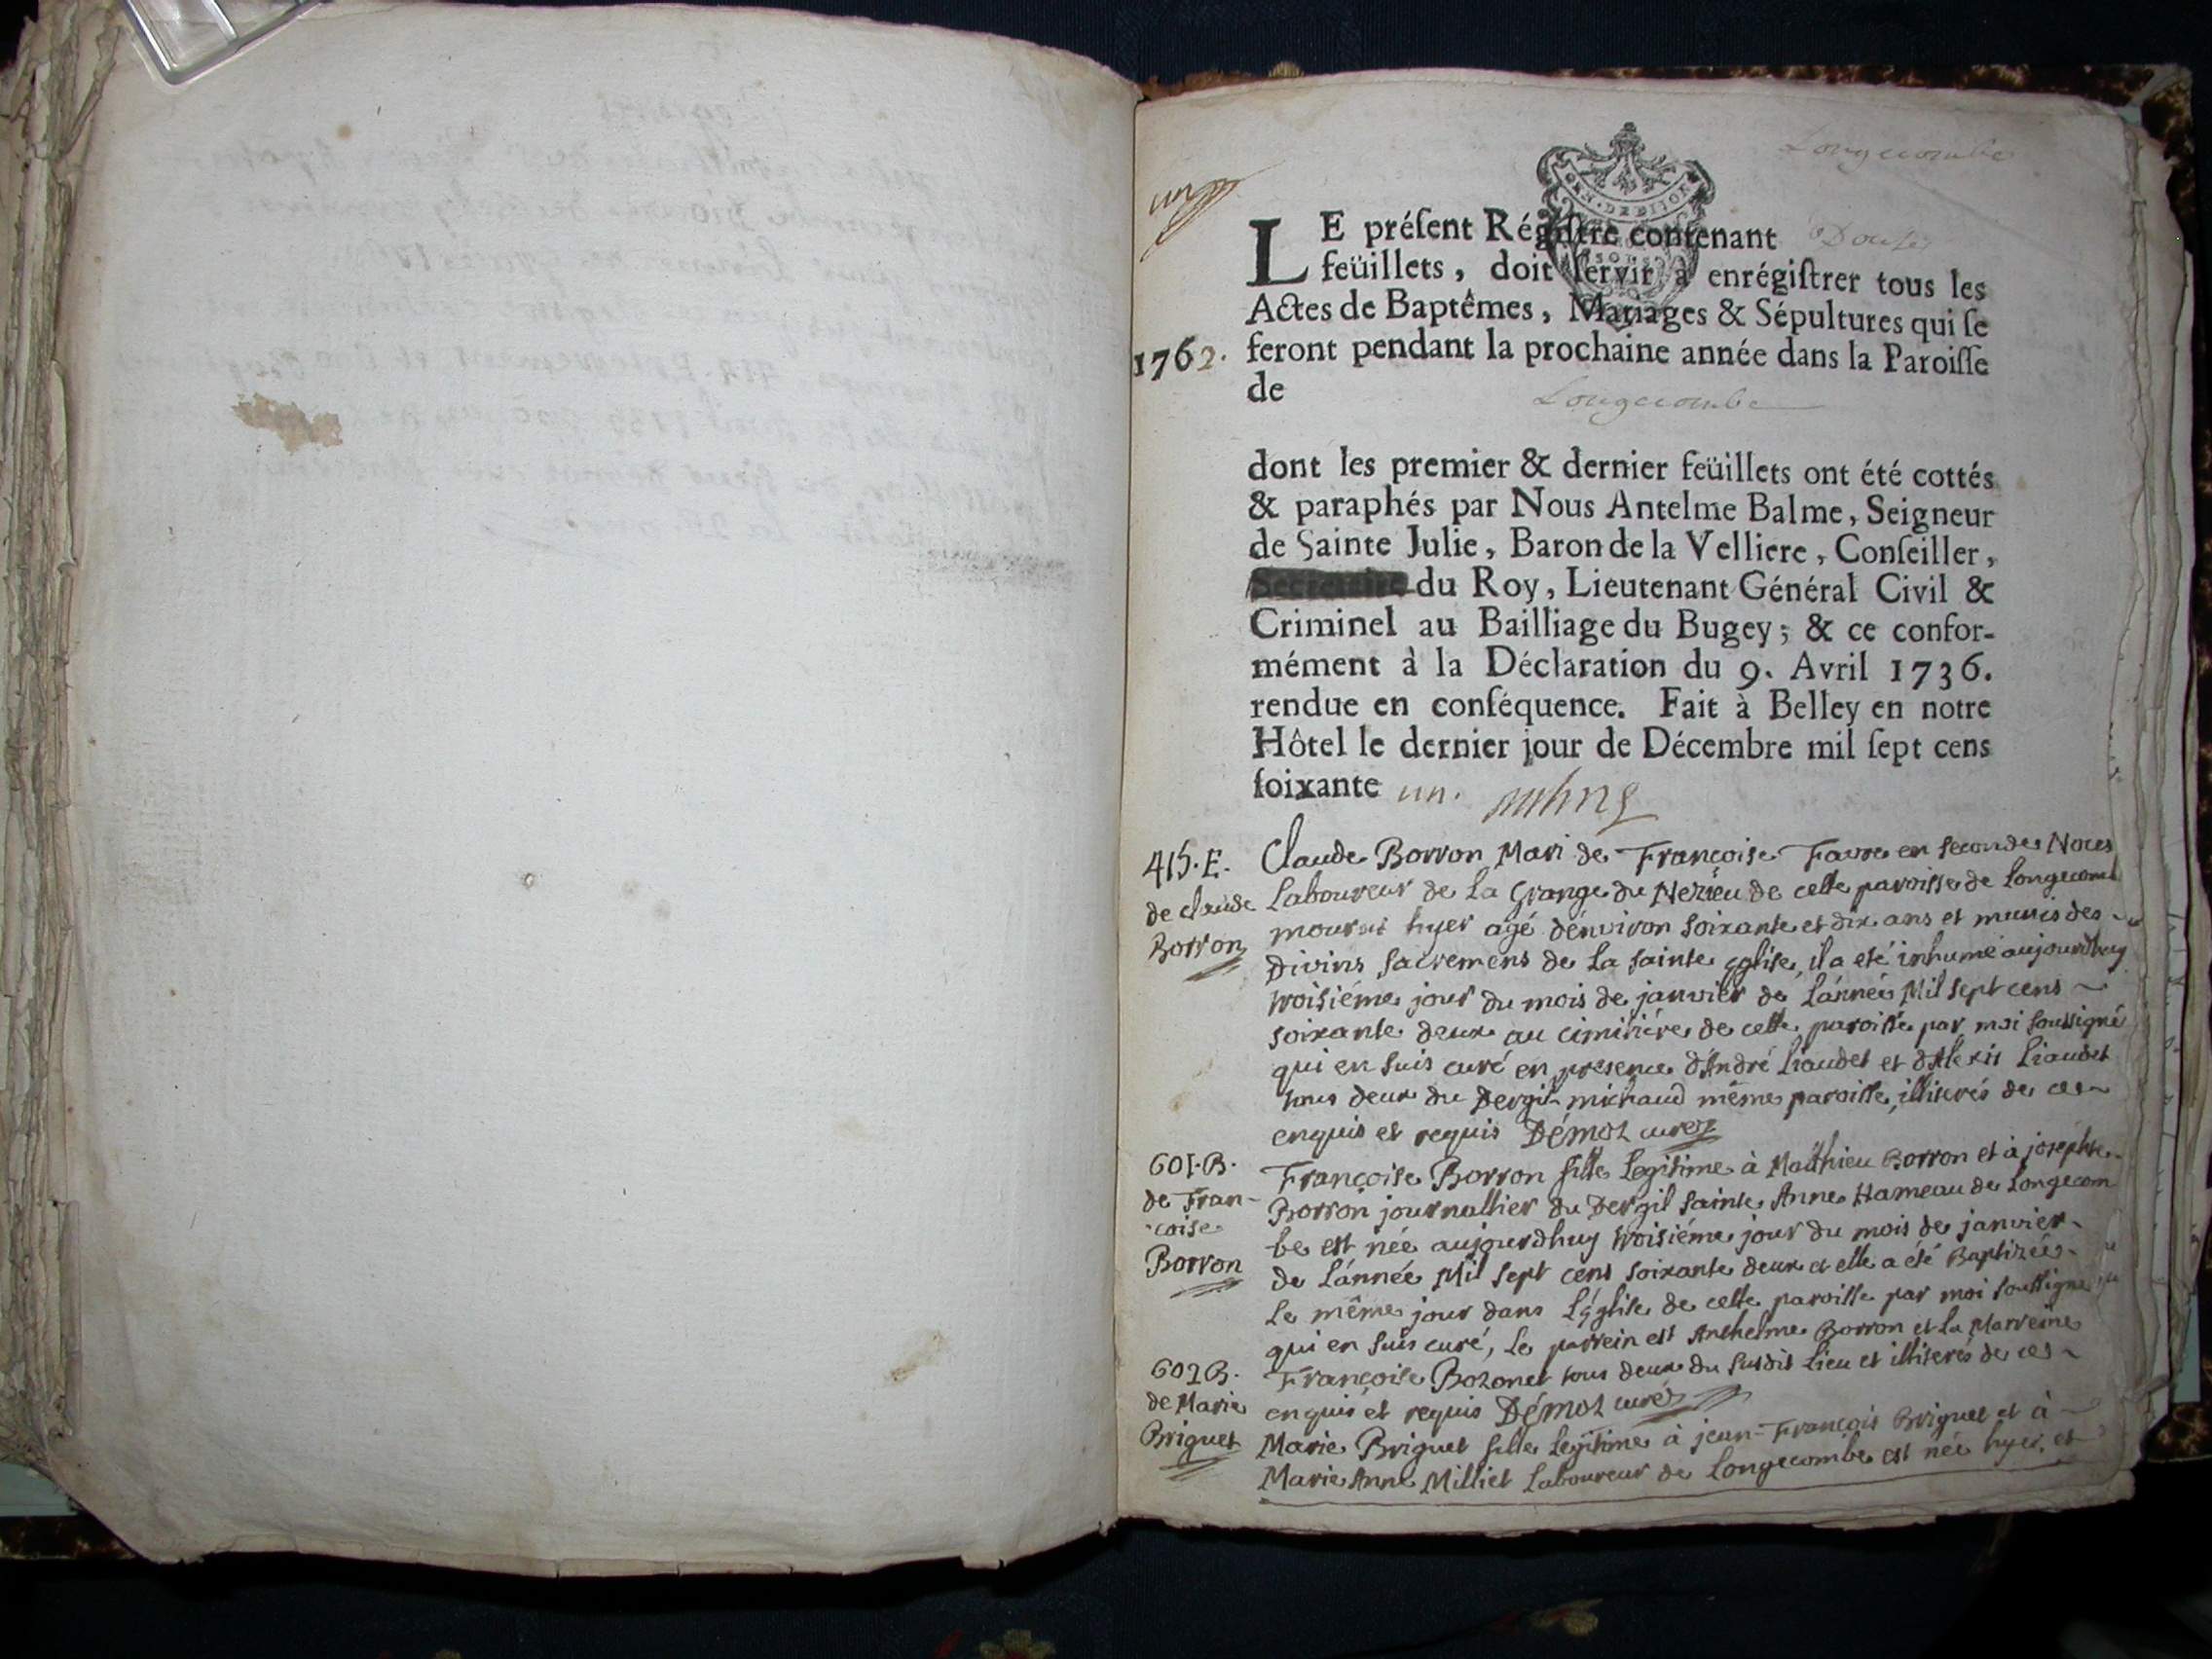 un
Longecombe
GEN. DE DIJON
LE préſent Régiſtre contenant Douse
feüillets, doit ſervir à enrégiſtrer tous les
Actes de Baptêmes, Mariages & Sépultures qui ſe
1762. feront pendant la prochaine année dans la Paroiſſe
de Longecombe
dont les premier & dernier feüillets ont été cottés
& paraphés par Nous Antelme Balme, Seigneur
de Sainte Julie, Baron de la Velliere, Conſeiller,
Secretaire du Roy, Lieutenant Général Civil &
Criminel au Bailliage du Bugey; & ce confor-
mément à la Déclaration du 9. Avril 1736.
rendue en conſéquence. Fait à Belley en notre
Hôtel le dernier jour de Décembre mil ſept cens
ſoixante un.
415. E. Claude Borron Mari de Françoise Favre en secondes Noces
de claude Laboureur de La Grange du Nezieu de cette paroisse de Longecomb
Borron mourut hyer agé d'environ soixante et dix ans et munis des
Divins sacremens de La sainte eglise, il a eté inhumé aujourdhuy
troisiéme jour du mois de janvier de L'année Mil sept cens
soixante deux au cimitiére de cette paroisse par moi soussigné
qui en suis curé en presence d'André Liaudet et d'Alexis Liaudet
tous deux du Dergit michaud même paroisse, illiterés de ce
enquis et requis Démoz curé
601. B. Françoise Borron fille Legitime à Matthieu Borron et à josephte
de Fran- Borron journallier du Dergit sainte Anne Hameau de Longecom
coise be est née aujourdhuy troisiéme jour du mois de janvier
Borron de L'année Mil sept cens soixante deux et elle a été Baptizée
Le même jour dans L'église de cette paroisse par moi soussigné
qui en suis curé, Le parrein est Anthelme Borron et La Marreine
602 B. Françoise Bozonet tous deux du susdit Lieu et illiterés de ce
de Marie enquis et requis Démoz curé
Briguet Marie Briguet fille Legitime à jean-François Briguet et à
Marie Anne Milliet Laboureur de Longecombe est née hyer, et